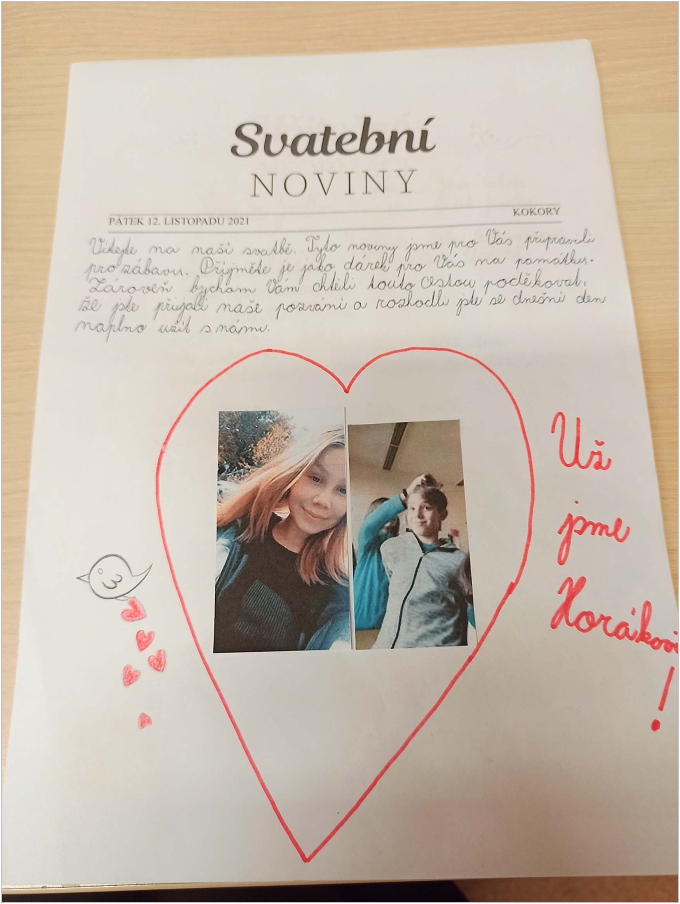 Svatební
NOVINY
PÁTEK 12. LISTOPADU 2021 KOKORY
Vítejte na naší svatbě. Tyto noviny jsme pro Vás připravili
pro zábavu. Přijměte je jako dárek pro Vás na památku.
Zároveň bychom Vám chtěli touto cestou poděkovat,
že jste přijali naše pozvání a rozhodli jste se dnešní den
naplno užít s námi.
Už
jsme
Horákovi
!